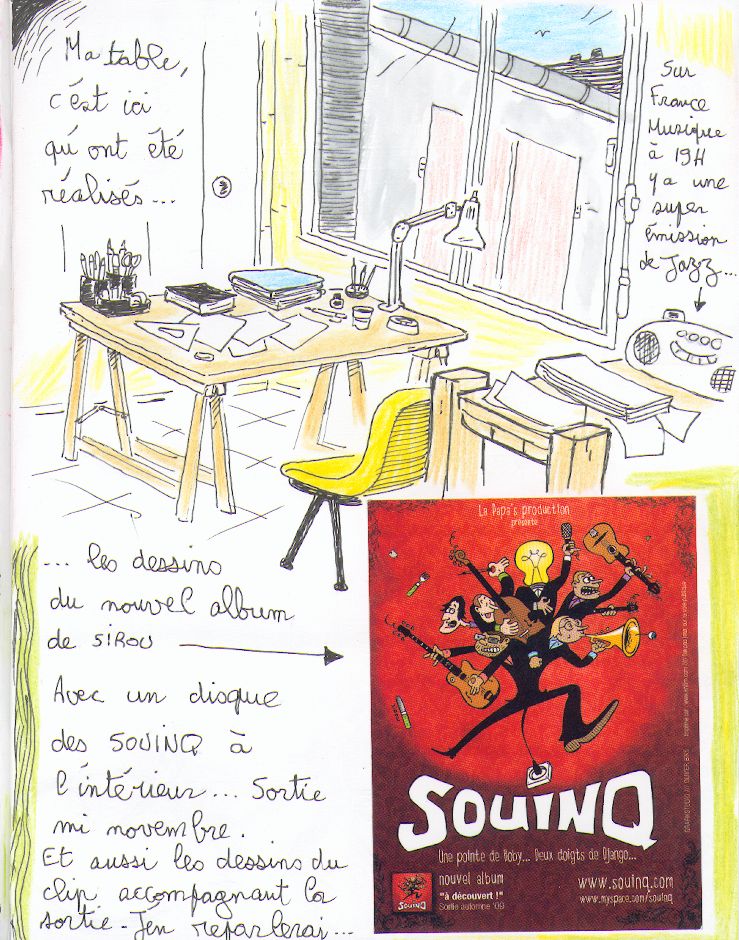 Ma table,
c'est ici
qu'ont été
réalisés...
Sur
France
Musique
à 19H
Y a une
super
émission
de Jazz...
... les dessins
du nouvel album
de SIROU
Avec un disque
des SOUINQ à
l'intérieur... Sortie
mi novembre.
Et aussi les dessins du
clip accompagnant la
sortie - J'en reparlerai...
La Papa's production
présente
SOUINQ
Une pointe de Boby... Deux doigts de Django...
nouvel album
"à découvert !"
Sortie automne '09
www.souinq.com
www.myspace.com/souinq